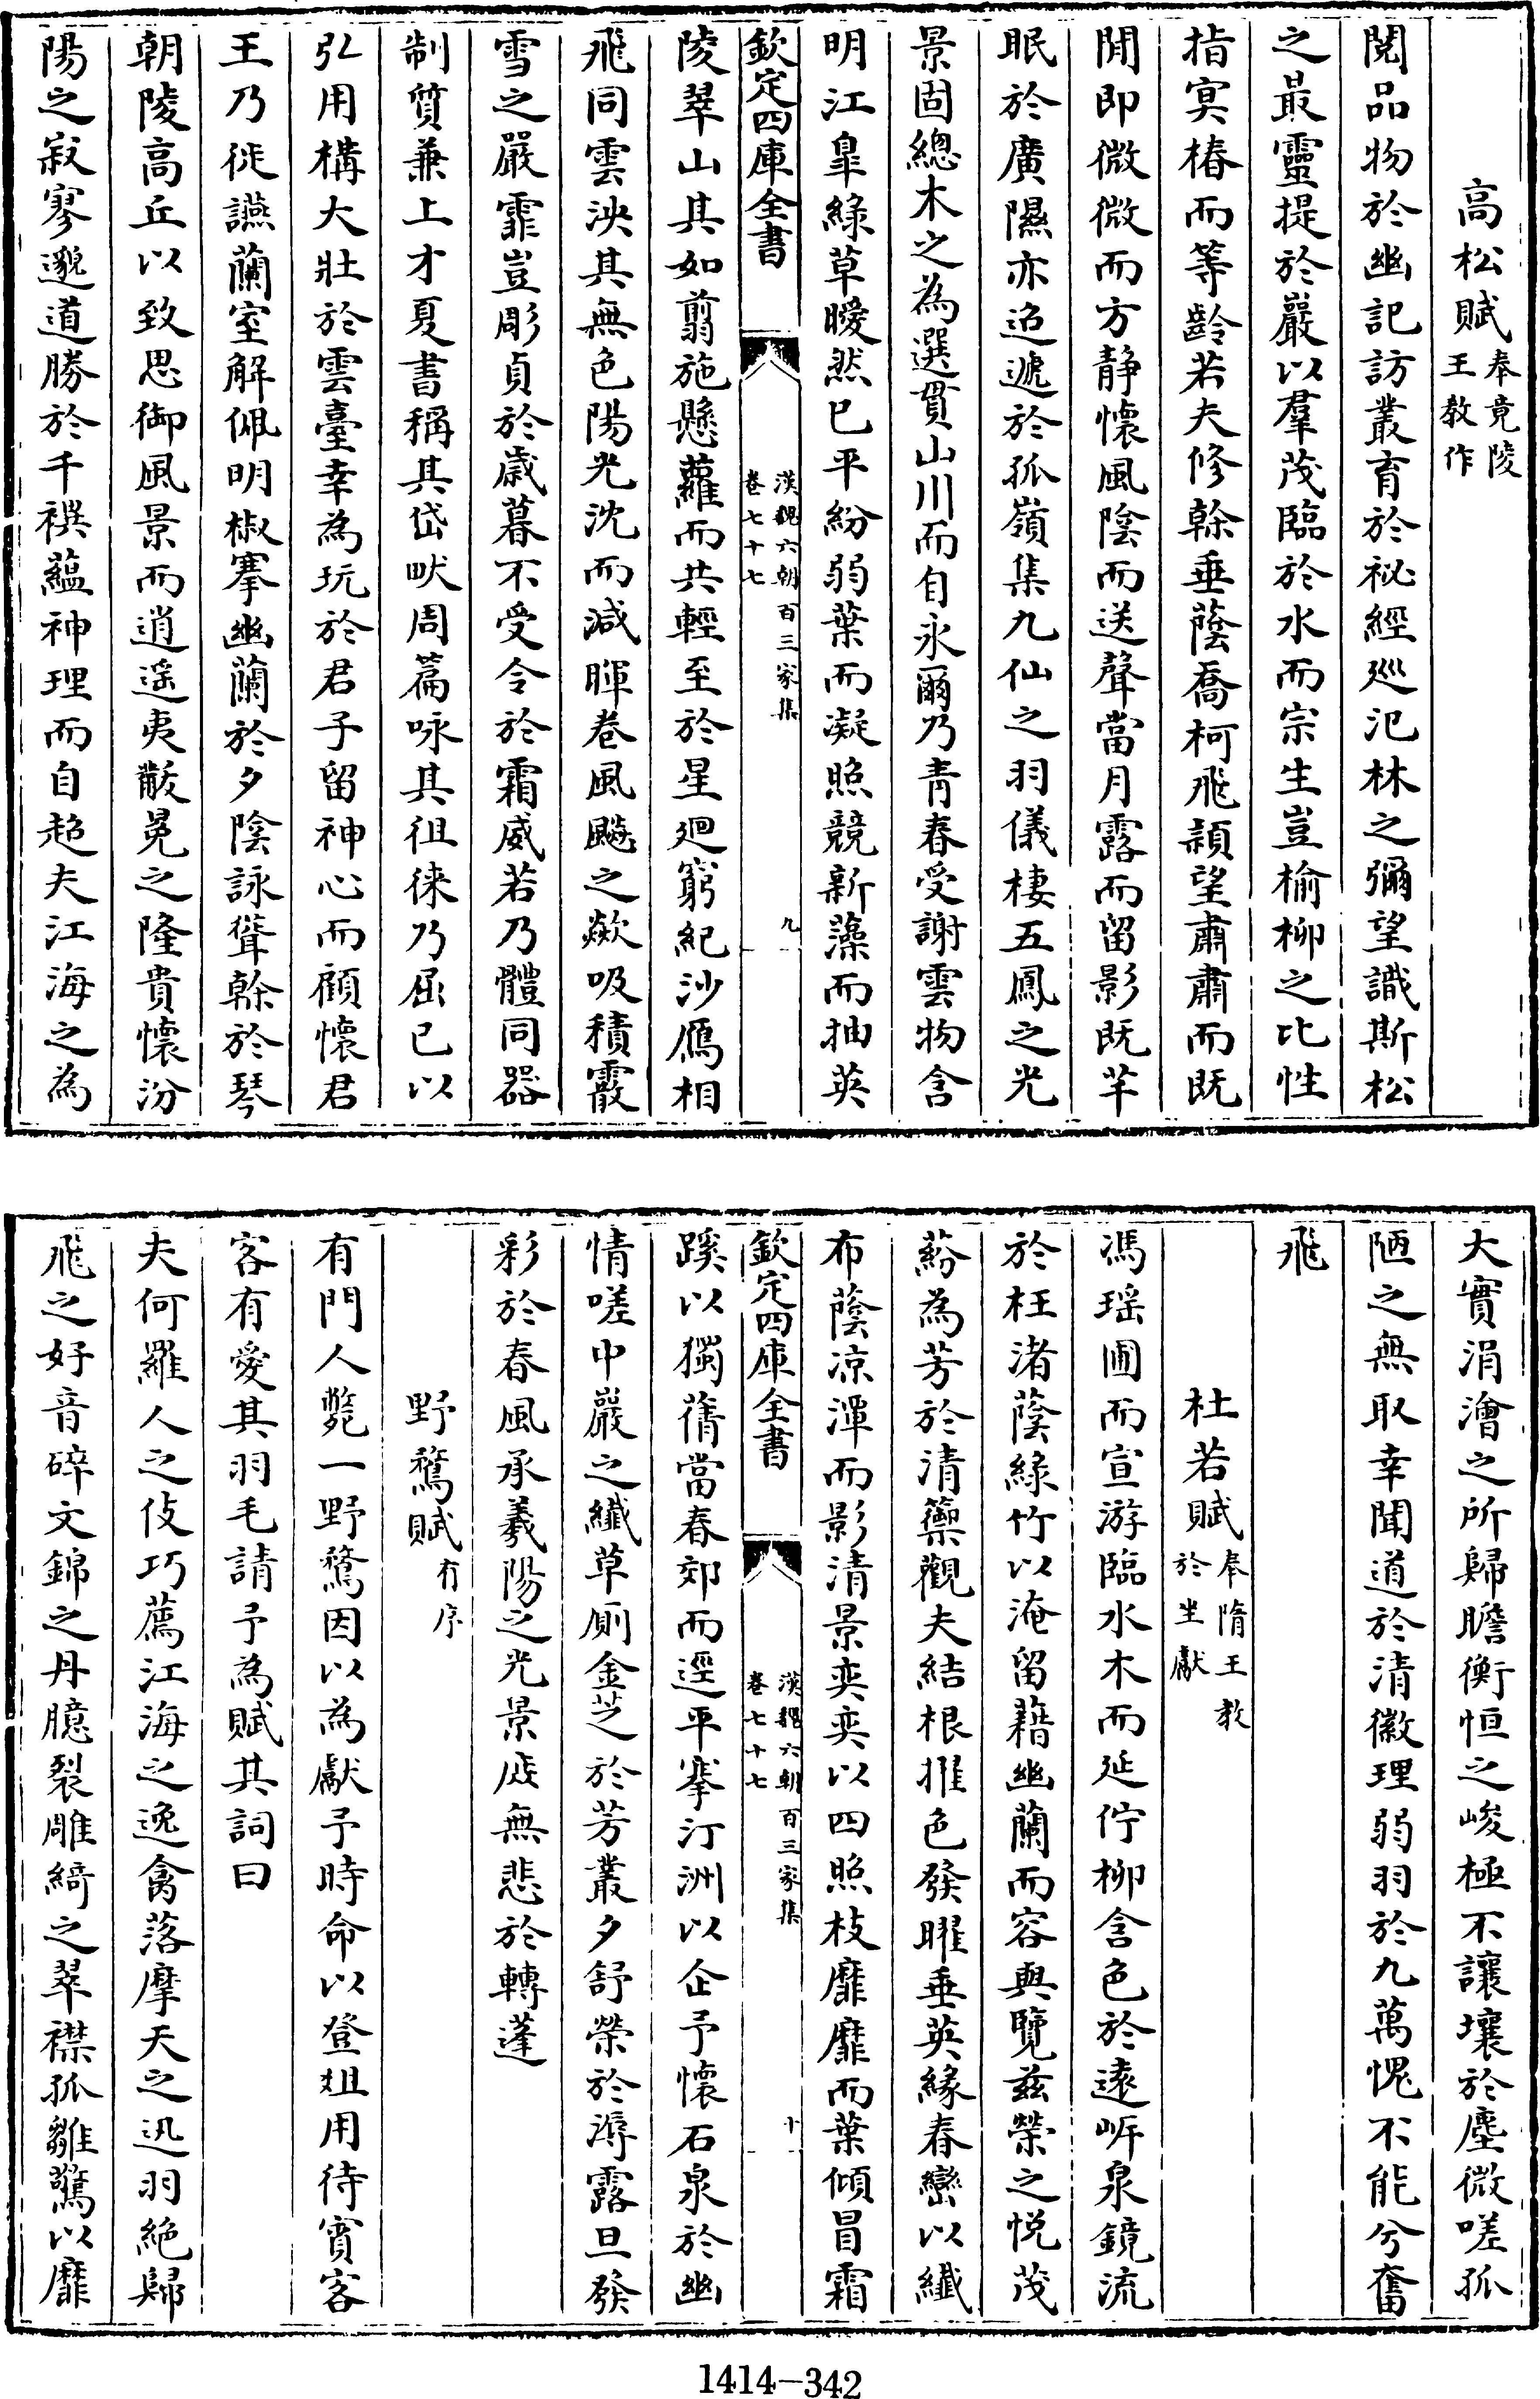 高松賦奉竟陵王教作
閲品物於幽記訪叢育於祕經巡汜林之彌望識斯松
之最靈提於巖以羣茂臨於水而宗生豈榆柳之比性
指冥椿而等齡若夫修榦垂蔭喬柯飛頴望肅肅而既
閒即微微而方静懷風陰而送聲當月露而留影既芊
眠於廣隰亦迢遞於孤嶺集九仙之羽儀棲五鳳之光
景固總木之為選貫山川而自永爾乃青春受謝雲物含
明江臯緑草曖然已平紛弱葉而凝照競新藻而抽英
欽定四庫全書
漢魏六朝百三家集
卷七十七
九
陵翠山其如翦施懸蘿而共輕至於星廻窮紀沙鴈相
飛同雲泱其無色陽光沈而減暉卷風飈之歘吸積霰
雪之嚴霏豈彫貞於歲暮不受令於霜威若乃體同器
制質兼上才夏書稱其岱畎周篇咏其徂徠乃屈已以
弘用構大壯於雲臺幸為玩於君子留神心而顧懷君
王乃徙讌蘭室解佩明椒搴幽蘭於夕陰詠聳榦於琴
朝陵高丘以致思御風景而逍遥夷黻冕之隆貴懷汾
陽之寂寥邈道勝於千禩藴神理而自超夫江海之為
大實涓澮之所歸瞻衡恒之峻極不讓壤於塵微嗟孤
陋之無取幸聞道於清徽理弱羽於九萬愧不能兮奮
飛
杜若賦奉隋王教於坐獻
馮瑶圃而宣游臨水木而延佇柳含色於遠岍泉鏡流
於枉渚蔭緑竹以淹留藉幽蘭而容與覽兹榮之悦茂
葯為芳於清籞觀夫結根擢色發曜垂英緣春巒以纖
布蔭凉潭而影清景奕奕以四照枝靡靡而葉傾冒霜
欽定四庫全書
漢魏六朝百三家集
卷七十七
十
蹊以獨蒨當春郊而逕平搴汀洲以企予懷石泉於幽
情嗟中巖之纖草厠金芝於芳叢夕舒榮於溽露旦發
彩於春風承羲陽之光景庶無悲於轉蓬
野鶩賦有序
有門人斃一野鶩因以為獻予時命以登俎用待賓客
客有愛其羽毛請予為賦其詞曰
夫何羅人之伎巧薦江海之逸禽落摩天之迅羽絶歸
飛之好音碎文錦之丹臆裂雕綺之翠襟孤雛驚以靡
1414-342